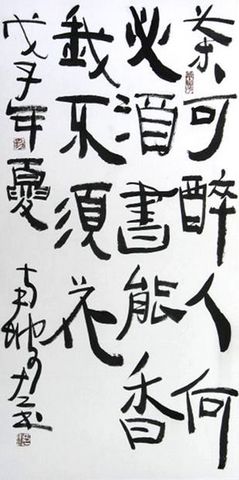 茶可醉人何
必酒書能香
我不須花
戊子年夏